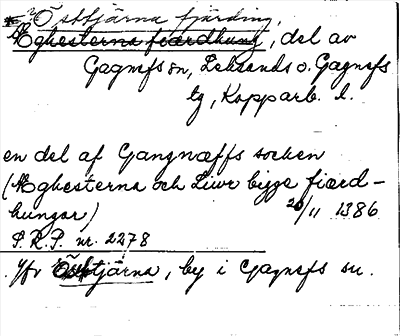 Östtjärna fjärding,
Æghesterna fiærdhung, del av
Gagnefs sn, Leksands o. Gagnefs
tg, Kopparb. l.
en del af Gangnæffs socken
(Æghesterna och Liwr bigge fiærd-
hungar) 20/11 1386
S.R.P. nr. 2278
Jfr Östtjärna, by i Gagnefs sn.